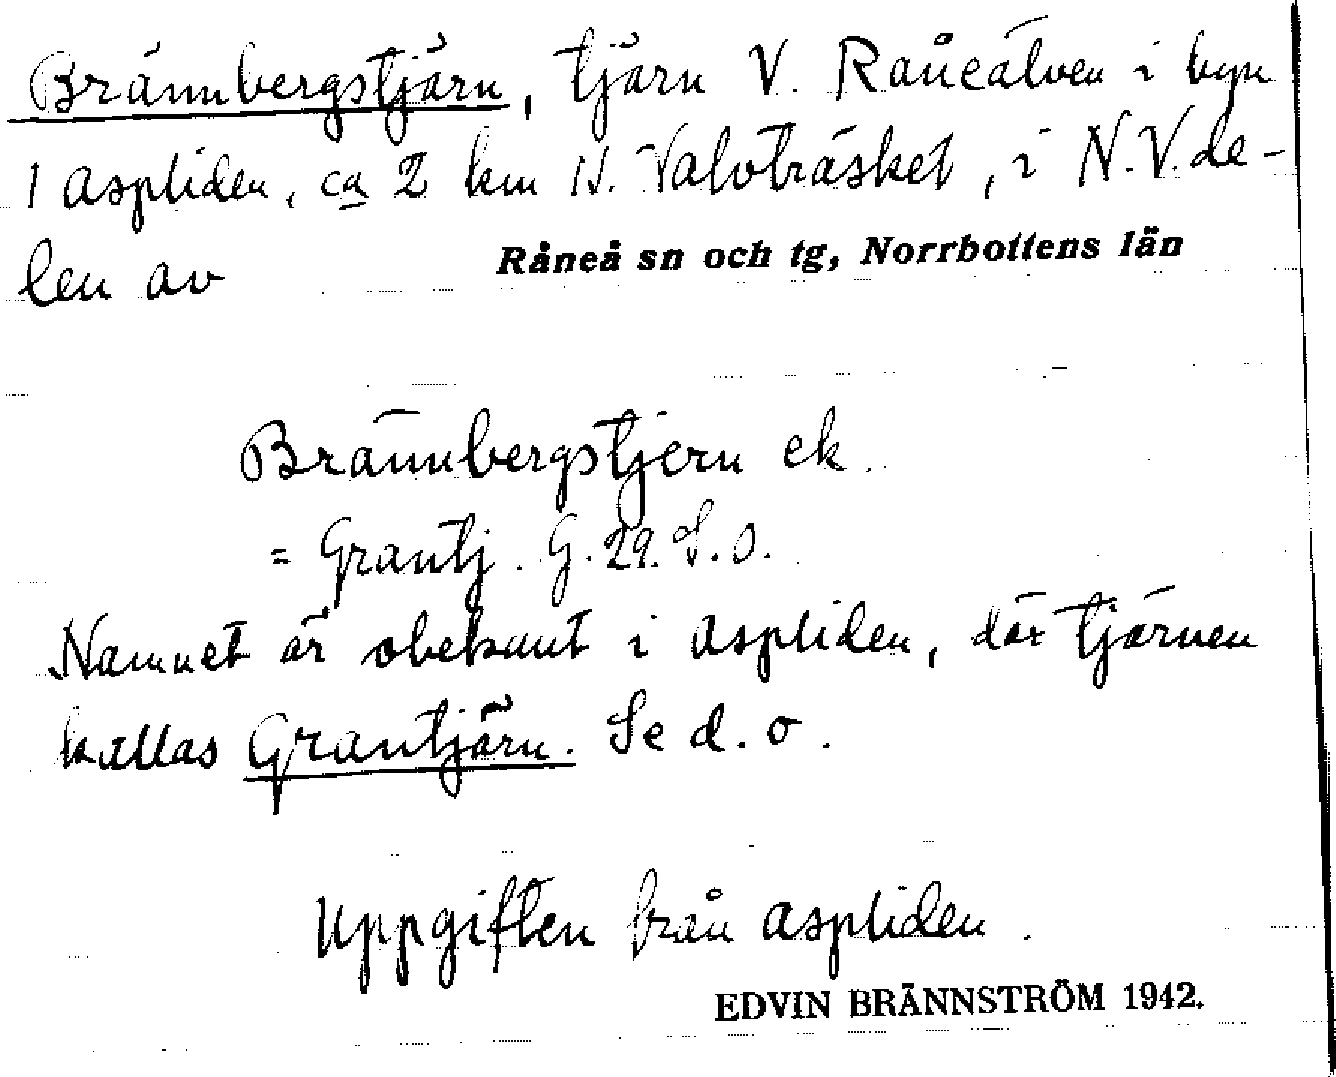 Brännbergstjärn, tjärn V. Råneälven i byn
1 Aspliden, ca 2 km N. Valvträsket, i N.V. de-
len av Råneå sn och tg, Norrbottens län
Brännbergstjern ek
= Grantj. G. 29. S.O.
Namnet är obekant i Aspliden, där tjärnen
kallas Grantjärn. Se d.o.
Uppgiften från Aspliden.
EDVIN BRÄNNSTRÖM 1942.